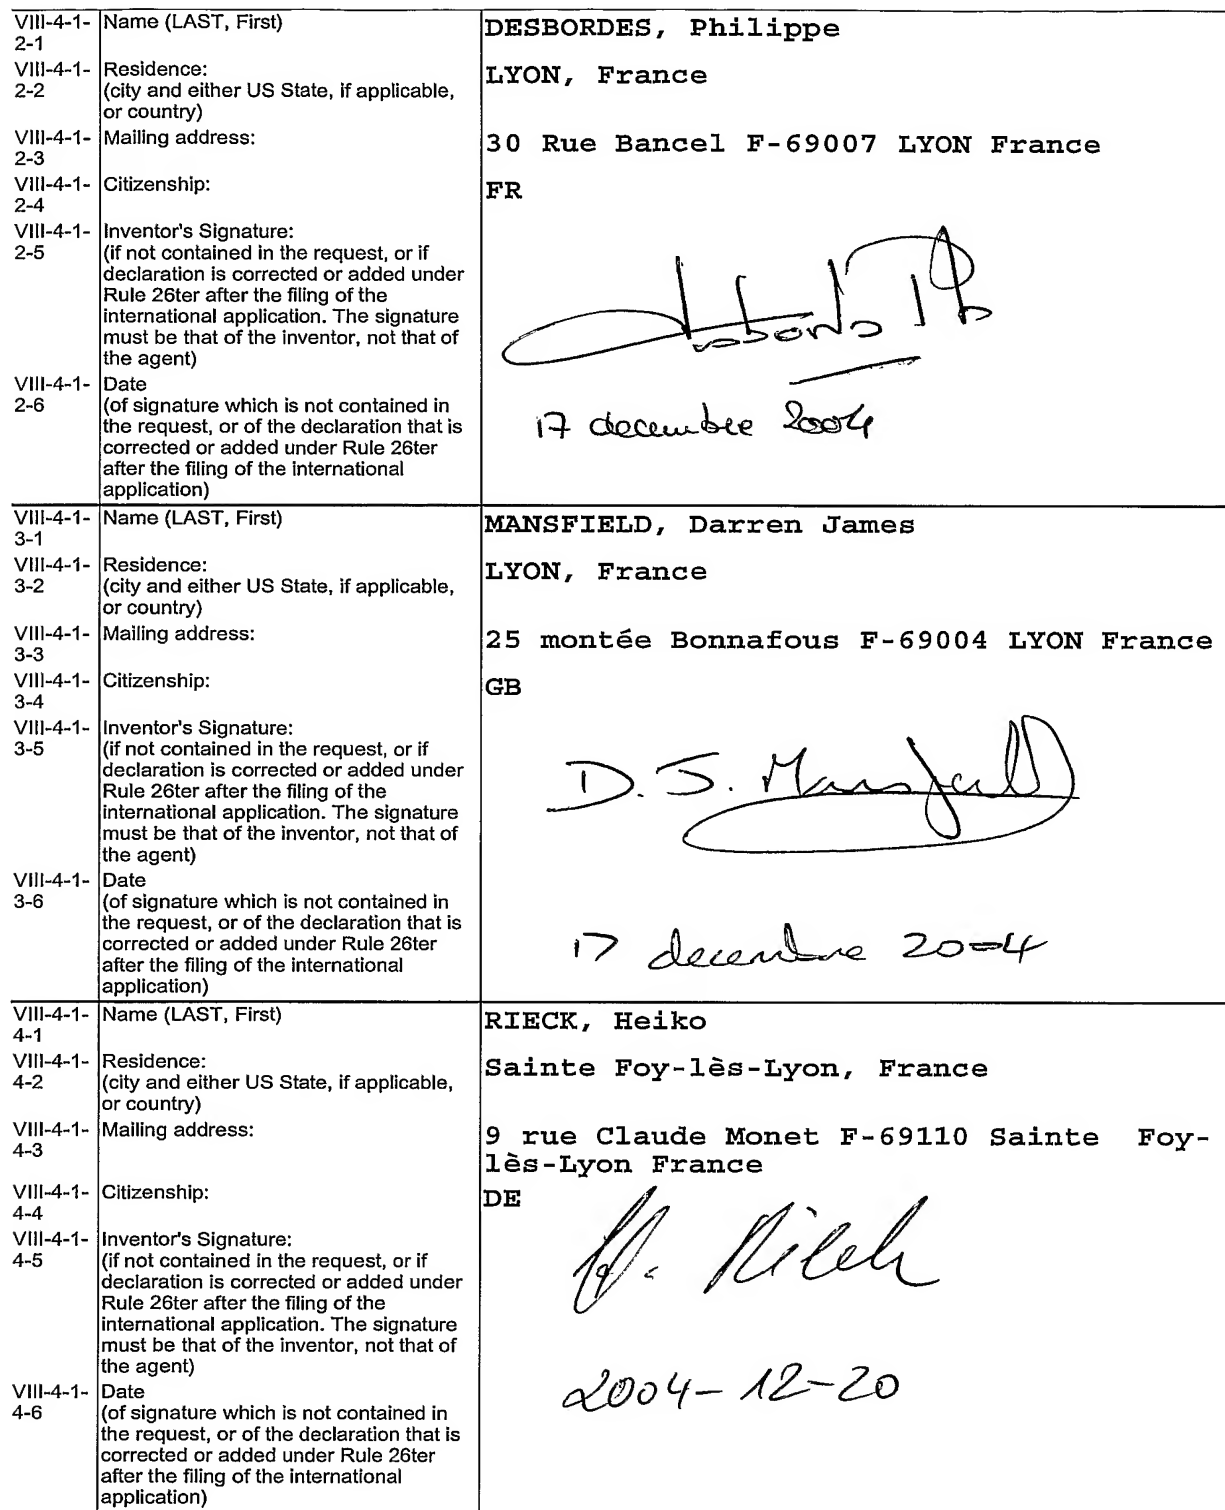 VIII-4-1-2-1 Name (LAST, First) DESBORDES, Philippe
VIII-4-1-2-2 Residence:
(city and either US State, if applicable,
or country) LYON, France
VIII-4-1-2-3 Mailing address: 30 Rue Bancel F-69007 LYON France
VIII-4-1-2-4 Citizenship: FR
VIII-4-1-2-5 Inventor's Signature:
(if not contained in the request, or if
declaration is corrected or added under
Rule 26ter after the filing of the
international application. The signature
must be that of the inventor, not that of
the agent)
VIII-4-1-2-6 Date
(of signature which is not contained in
the request, or of the declaration that is
corrected or added under Rule 26ter
after the filing of the international
application)
17 decembre 2004
VIII-4-1-3-1 Name (LAST, First) MANSFIELD, Darren James
VIII-4-1-3-2 Residence:
(city and either US State, if applicable,
or country) LYON, France
VIII-4-1-3-3 Mailing address: 25 montée Bonnafous F-69004 LYON France
VIII-4-1-3-4 Citizenship: GB
VIII-4-1-3-5 Inventor's Signature:
(if not contained in the request, or if
declaration is corrected or added under
Rule 26ter after the filing of the
international application. The signature
must be that of the inventor, not that of
the agent)
D. J. Mansfield
VIII-4-1-3-6 Date
(of signature which is not contained in
the request, or of the declaration that is
corrected or added under Rule 26ter
after the filing of the international
application)
17 decembre 2004
VIII-4-1-4-1 Name (LAST, First) RIECK, Heiko
VIII-4-1-4-2 Residence:
(city and either US State, if applicable,
or country) Sainte Foy-lès-Lyon, France
VIII-4-1-4-3 Mailing address: 9 rue Claude Monet F-69110 Sainte Foy-
lès-Lyon France
VIII-4-1-4-4 Citizenship: DE
VIII-4-1-4-5 Inventor's Signature:
(if not contained in the request, or if
declaration is corrected or added under
Rule 26ter after the filing of the
international application. The signature
must be that of the inventor, not that of
the agent)
H. Rieck
VIII-4-1-4-6 Date
(of signature which is not contained in
the request, or of the declaration that is
corrected or added under Rule 26ter
after the filing of the international
application)
2004-12-20